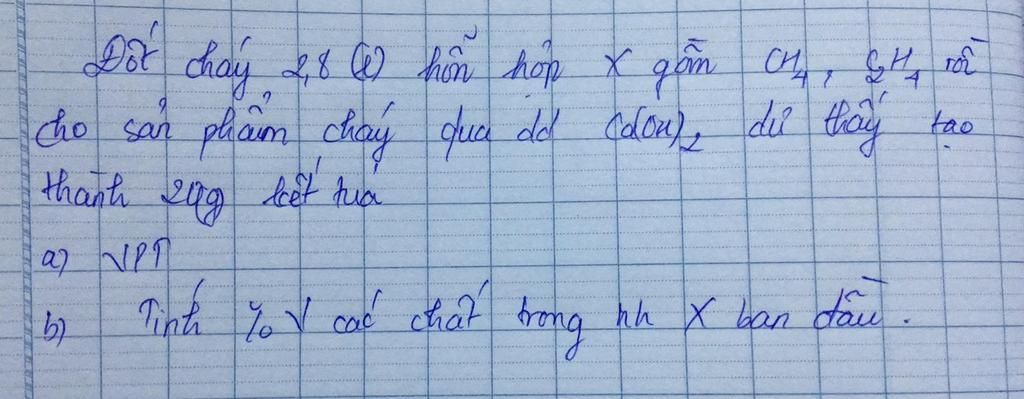 Đốt cháy 2,8 (l) hỗn hợp X gồm CH4, C2H4 rồi
cho sản phẩm cháy qua dd Ca(OH)2 dư thấy tạo
thành 20(g) kết tủa
a) VPT
b) Tính % V các chất trong hh X ban đầu.